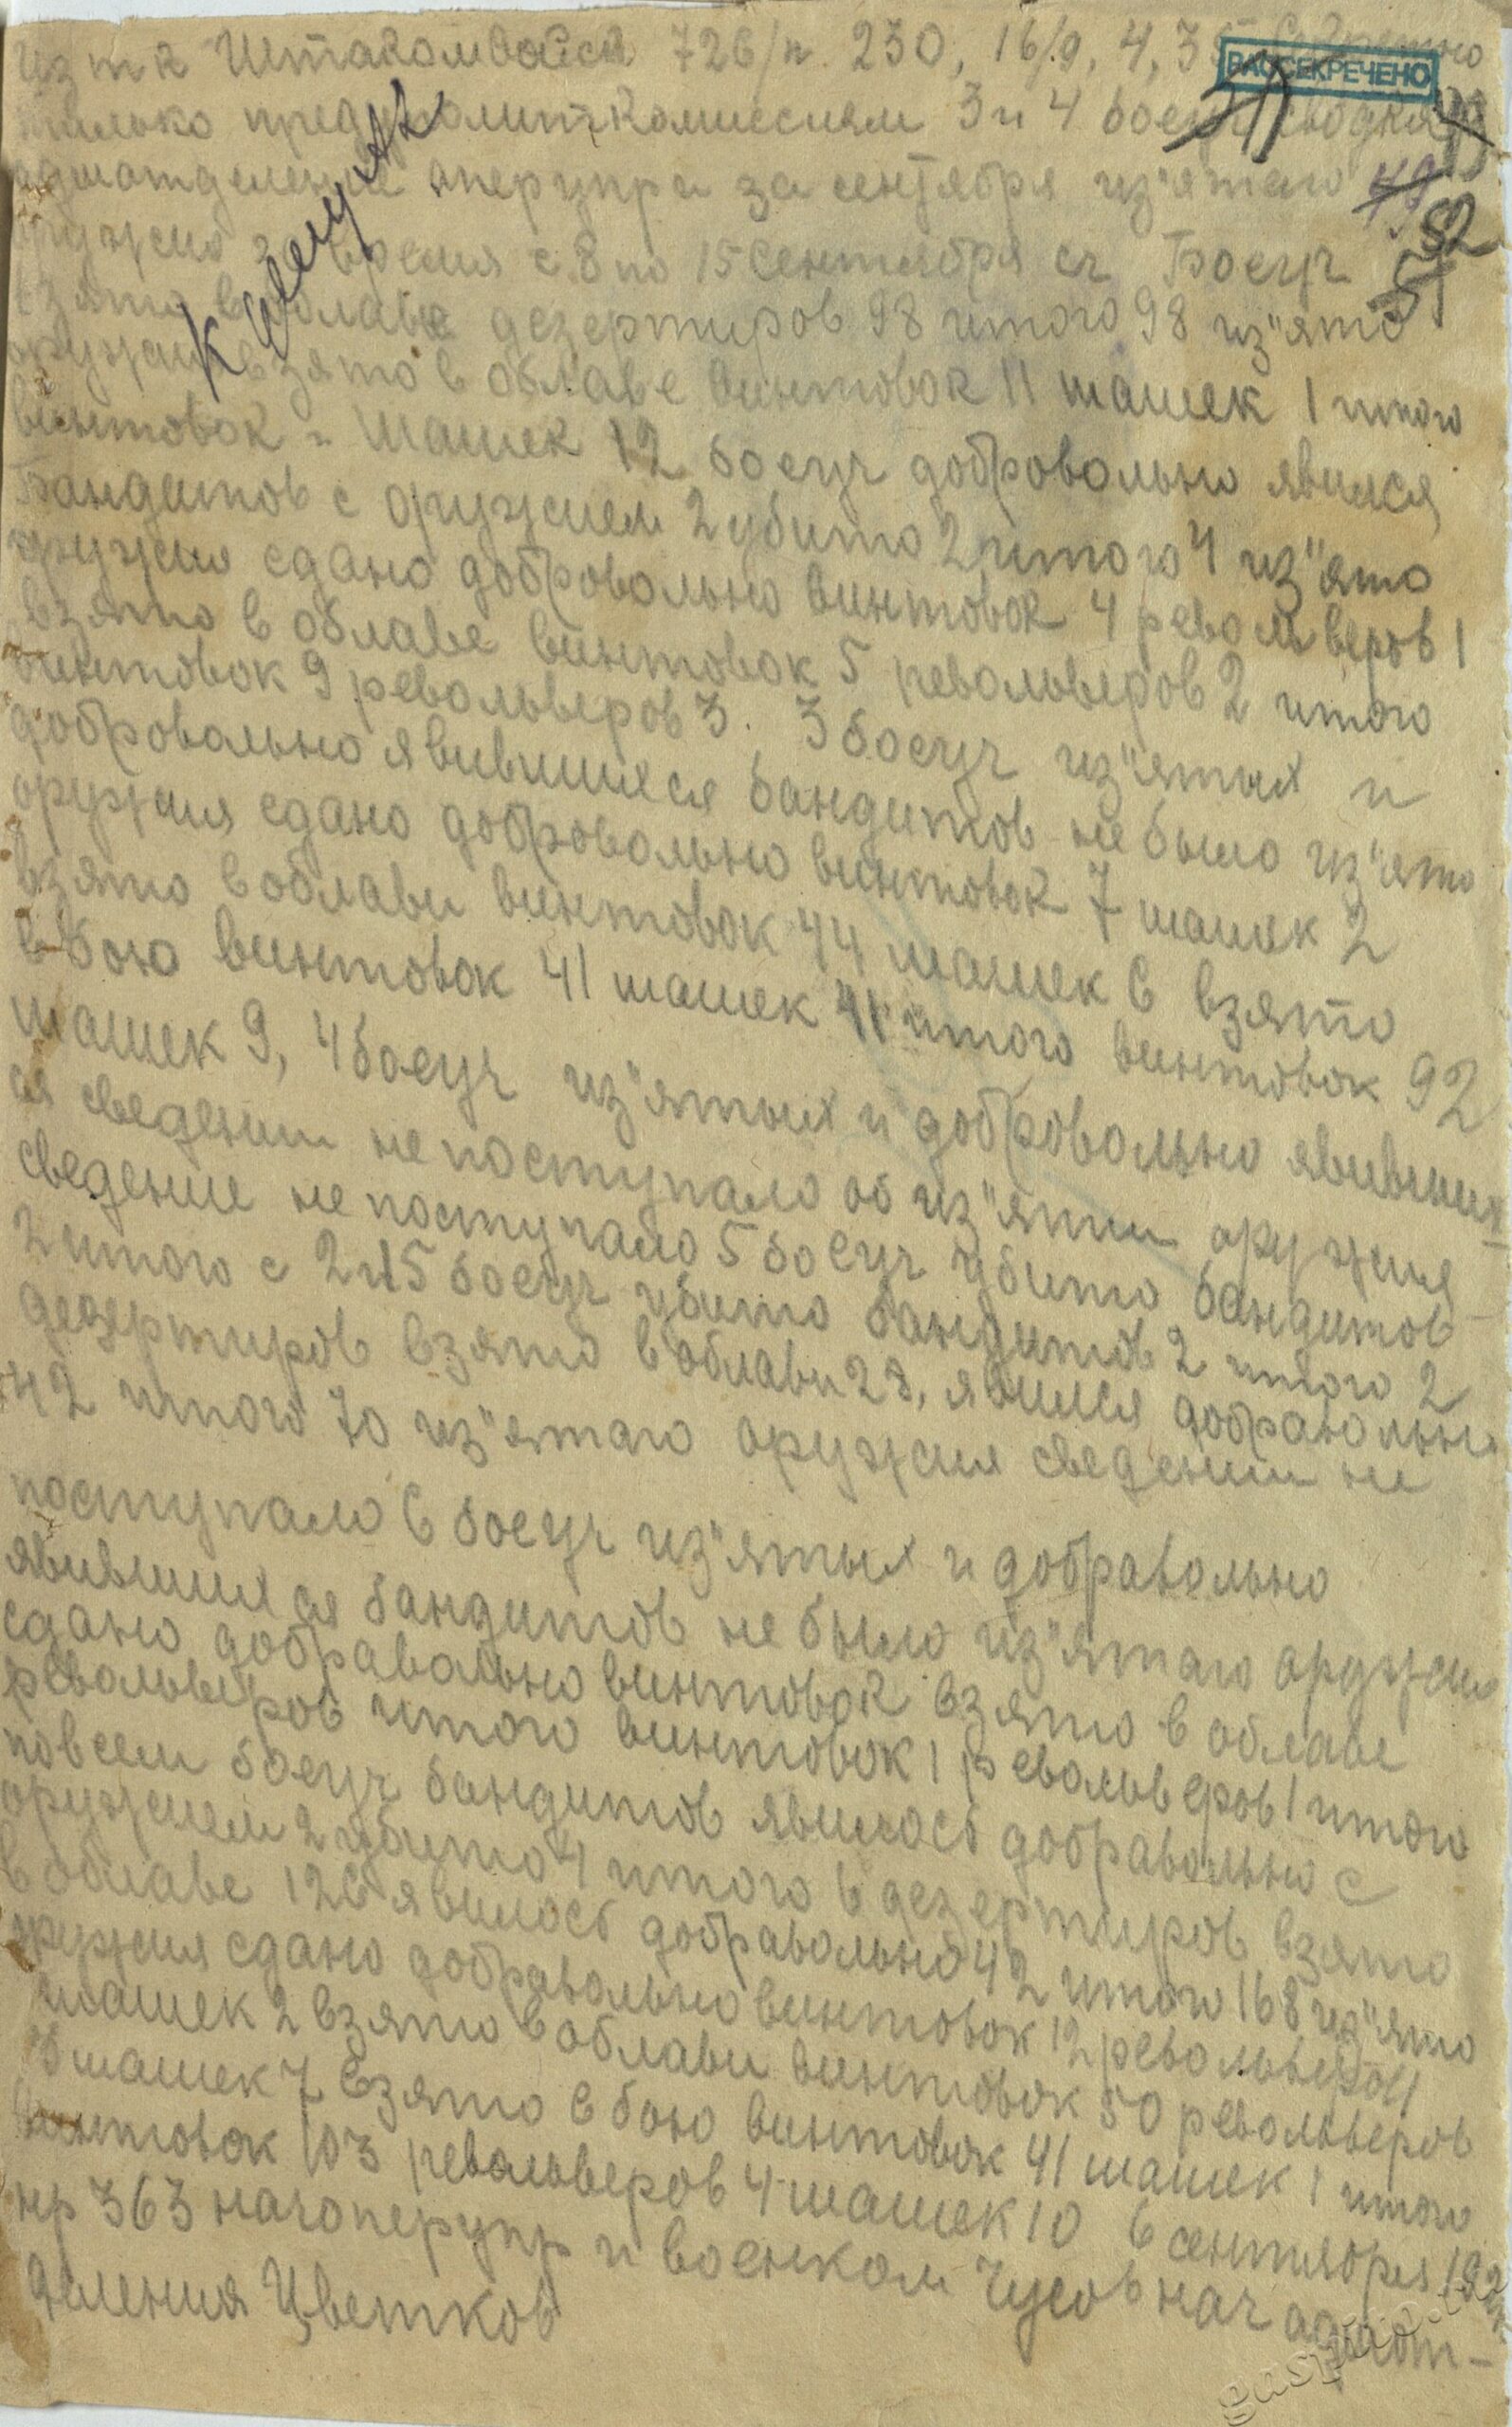 из тк Штакомвойск 726/п 230, 16/9, 4, 35 Секретно
РАССЕКРЕЧЕНО
только предполиткомиссиям 3 и 4 боеуч сводка
49
адмотделение оперупра за сентября из"ятаго
52
51
оружия за время с 8 по 15 сентября сг Боеуч
К делу
взято в облаве дезертиров 98 итого 98 из"ято
оружия взято в облаве винтовок 11 шашек 1 итого
винтовок и шашек 12 боеуч добровольно явился
Бандитов с оружием 2 убито 2 итого 4 из"ято
оружия сдано добровольно винтовок 4 револьверов 1
взято в облаве винтовок 5 револьверов 2 итого
винтовок 9 револьверов 3. 3 боеуч из"ятых и
добровольно явившихся бандитов не было из"ято
оружия сдано добровольно винтовок 7 шашек 2
взято в облави винтовок 44 шашек 6 взято
в бою винтовок 41 шашек 1 итого винтовок 92
шашек 9, 4 боеуч из"ятых и добровольно явивших
ся сведении не поступало об из"ятии оружия
сведение не поступало 5 боеуч убито бандитов
2 итого с 2 и 5 боеуч убито бандитов 2 итого 2
дезертиров взято в облави 28, явился добравольно
42 итого 70 из"ятаго оружия сведении не
поступало 6 боеуч из"ятых и добравольно
явившихся бандитов не было из"ятаго оружия
сдано добравольно винтовок взято в облаве
револьверов итого винтовок 1 револьверов 1 итого
по всем боеуч бандитов явилось добравольно с
оружием 2 убито 4 итого 6 дезертиров взято
в облаве 126 явилось добравольно 42 итого 168 из"ято
оружия сдано добравольно винтовок 12 револьверов 1
шашек 2 взято в облави винтовок 50 револьверов
3 шашек 7 взято в бою винтовок 41 шашек 1 итого
винтовок 103 револьверов 4 шашек 10 6 сентября 192
нр 363 начоперупр и военком Чусов нач адмот-
деления Цветков
gaspiro.ru